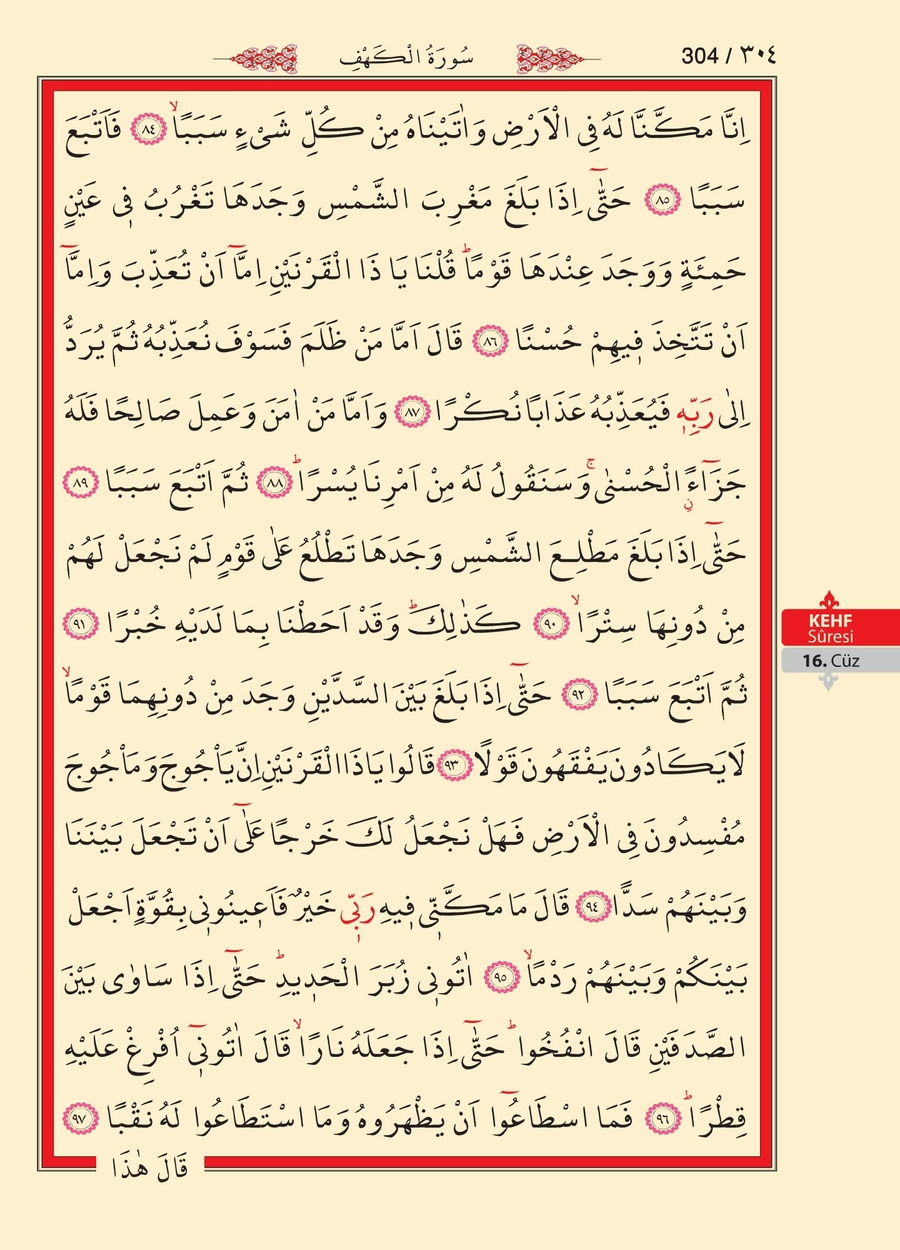 سُورَةُ الْكَهْفِ
304 / ٣٠٤
اِنَّا مَكَّنَّا لَهُ فِى الْاَرْضِ وَاٰتَيْنَاهُ مِنْ كُلِّ شَىْءٍ سَبَبًاۙ ﴿٨٤﴾ فَاَتْبَعَ
سَبَبًا ﴿٨٥﴾ حَتّٰٓى اِذَا بَلَغَ مَغْرِبَ الشَّمْسِ وَجَدَهَا تَغْرُبُ ف۪ى عَيْنٍ
حَمِئَةٍ وَوَجَدَ عِنْدَهَا قَوْمًاۜ قُلْنَا يَا ذَا الْقَرْنَيْنِ اِمَّٓا اَنْ تُعَذِّبَ وَاِمَّٓا
اَنْ تَتَّخِذَ ف۪يهِمْ حُسْنًا ﴿٨٦﴾ قَالَ اَمَّا مَنْ ظَلَمَ فَسَوْفَ نُعَذِّبُهُ ثُمَّ يُرَدُّ
اِلٰى رَبِّه۪ فَيُعَذِّبُهُ عَذَابًا نُكْرًا ﴿٨٧﴾ وَاَمَّا مَنْ اٰمَنَ وَعَمِلَ صَالِحًا فَلَهُ
جَزَٓاءًۨ الْحُسْنٰىۚ وَسَنَقُولُ لَهُ مِنْ اَمْرِنَا يُسْرًاۜ ﴿٨٨﴾ ثُمَّ اَتْبَعَ سَبَبًا ﴿٨٩﴾
حَتّٰٓى اِذَا بَلَغَ مَطْلِعَ الشَّمْسِ وَجَدَهَا تَطْلُعُ عَلٰى قَوْمٍ لَمْ نَجْعَلْ لَهُمْ
مِنْ دُونِهَا سِتْرًاۙ ﴿٩٠﴾ كَذٰلِكَۜ وَقَدْ اَحَطْنَا بِمَا لَدَيْهِ خُبْرًا ﴿٩١﴾
ثُمَّ اَتْبَعَ سَبَبًا ﴿٩٢﴾ حَتّٰٓى اِذَا بَلَغَ بَيْنَ السَّدَّيْنِ وَجَدَ مِنْ دُونِهِمَا قَوْمًاۙ
لَا يَكَادُونَ يَفْقَهُونَ قَوْلًا ﴿٩٣﴾ قَالُوا يَا ذَا الْقَرْنَيْنِ اِنَّ يَأْجُوجَ وَمَأْجُوجَ
مُفْسِدُونَ فِى الْاَرْضِ فَهَلْ نَجْعَلُ لَكَ خَرْجًا عَلٰٓى اَنْ تَجْعَلَ بَيْنَنَا
وَبَيْنَهُمْ سَدًّا ﴿٩٤﴾ قَالَ مَا مَكَّنّ۪ى ف۪يهِ رَبّ۪ى خَيْرٌ فَاَع۪ينُون۪ى بِقُوَّةٍ اَجْعَلْ
بَيْنَكُمْ وَبَيْنَهُمْ رَدْمًاۙ ﴿٩٥﴾ اٰتُون۪ى زُبَرَ الْحَد۪يدِۜ حَتّٰٓى اِذَا سَاوٰى بَيْنَ
الصَّدَفَيْنِ قَالَ انْفُخُواۜ حَتّٰٓى اِذَا جَعَلَهُ نَارًاۙ قَالَ اٰتُون۪ٓى اُفْرِغْ عَلَيْهِ
قِطْرًاۜ ﴿٩٦﴾ فَمَا اسْطَاعُٓوا اَنْ يَظْهَرُوهُ وَمَا اسْتَطَاعُوا لَهُ نَقْبًا ﴿٩٧﴾
قَالَ هٰذَا
KEHF
Sûresi
16. Cüz